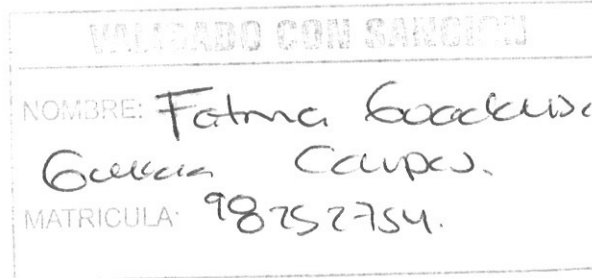 VALIDADO CON SANCION
NOMBRE: Fatima Guadalupe
Garcia Campos.
MATRICULA: 98252754.